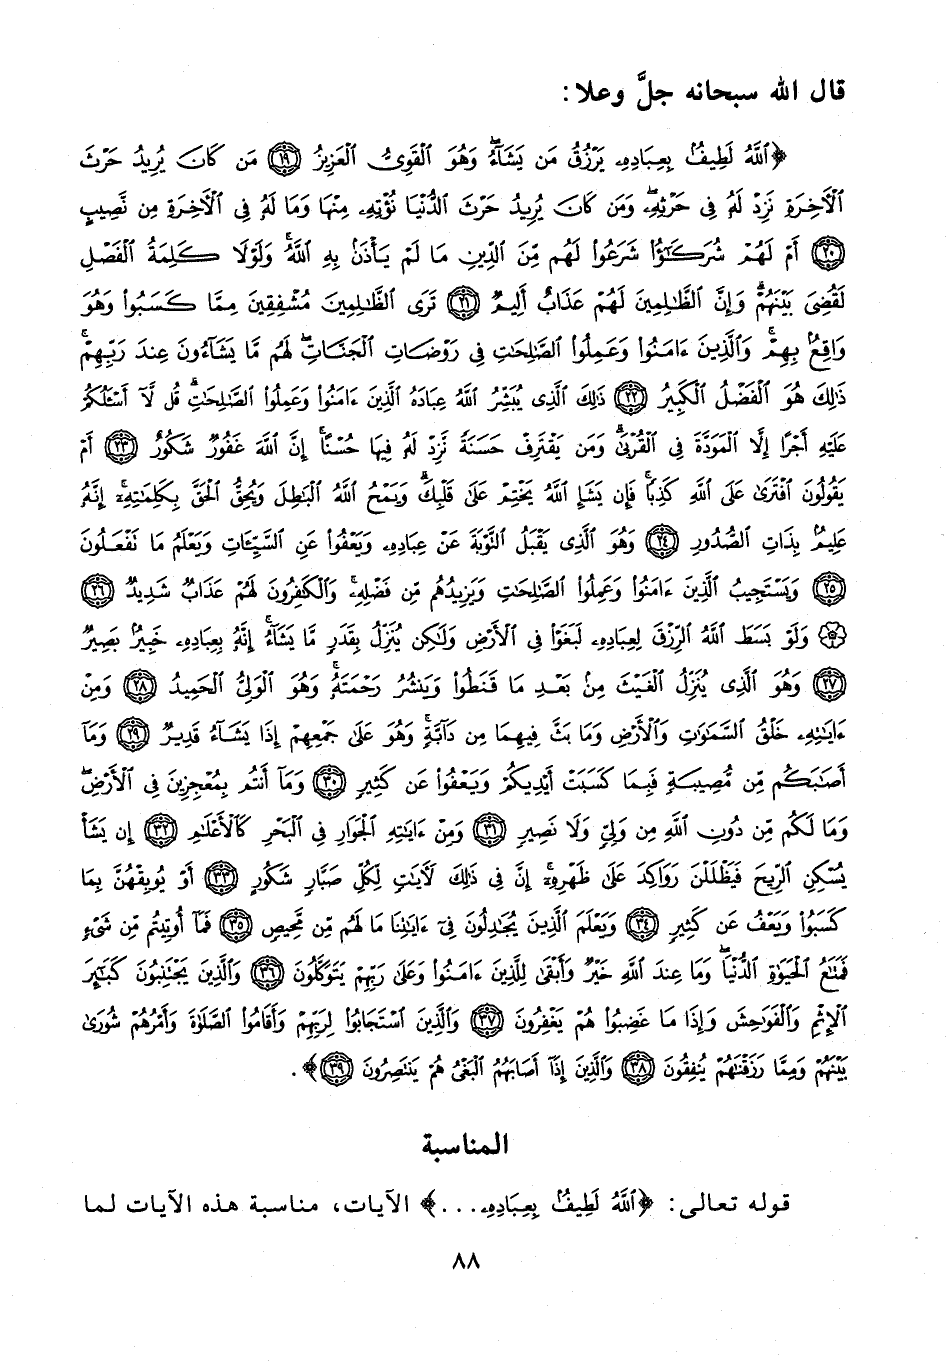 قال الله سبحانه جلَّ وعلا:
﴿اللَّهُ لَطِيفٌ بِعِبَادِهِ يَرْزُقُ مَن يَشَاءُ وَهُوَ الْقَوِيُّ الْعَزِيزُ ١٩ مَن كَانَ يُرِيدُ حَرْثَ
الْآخِرَةِ نَزِدْ لَهُ فِي حَرْثِهِ وَمَن كَانَ يُرِيدُ حَرْثَ الدُّنْيَا نُؤْتِهِ مِنْهَا وَمَا لَهُ فِي الْآخِرَةِ مِن نَّصِيبٍ
٢٠ أَمْ لَهُمْ شُرَكَاؤُا شَرَعُوا لَهُم مِّنَ الدِّينِ مَا لَمْ يَأْذَنْ بِهِ اللَّهُ وَلَوْلَا كَلِمَةُ الْفَصْلِ
لَقُضِيَ بَيْنَهُمْ وَإِنَّ الظَّالِمِينَ لَهُمْ عَذَابٌ أَلِيمٌ ٢١ تَرَى الظَّالِمِينَ مُشْفِقِينَ مِمَّا كَسَبُوا وَهُوَ
وَاقِعٌ بِهِمْ وَالَّذِينَ ءَامَنُوا وَعَمِلُوا الصَّالِحَاتِ فِي رَوْضَاتِ الْجَنَّاتِ لَهُم مَّا يَشَاءُونَ عِندَ رَبِّهِمْ
ذَلِكَ هُوَ الْفَضْلُ الْكَبِيرُ ٢٢ ذَلِكَ الَّذِي يُبَشِّرُ اللَّهُ عِبَادَهُ الَّذِينَ ءَامَنُوا وَعَمِلُوا الصَّالِحَاتِ قُل لَّا أَسْئَلُكُمْ
عَلَيْهِ أَجْرًا إِلَّا الْمَوَدَّةَ فِي الْقُرْبَى وَمَن يَقْتَرِفْ حَسَنَةً نَّزِدْ لَهُ فِيهَا حُسْنًا إِنَّ اللَّهَ غَفُورٌ شَكُورٌ ٢٣ أَمْ
يَقُولُونَ افْتَرَى عَلَى اللَّهِ كَذِبًا فَإِن يَشَإِ اللَّهُ يَخْتِمْ عَلَى قَلْبِكَ وَيَمْحُ اللَّهُ الْبَاطِلَ وَيُحِقُّ الْحَقَّ بِكَلِمَاتِهِ إِنَّهُ
عَلِيمٌ بِذَاتِ الصُّدُورِ ٢٤ وَهُوَ الَّذِي يَقْبَلُ التَّوْبَةَ عَنْ عِبَادِهِ وَيَعْفُوا عَنِ السَّيِّئَاتِ وَيَعْلَمُ مَا تَفْعَلُونَ
٢٥ وَيَسْتَجِيبُ الَّذِينَ ءَامَنُوا وَعَمِلُوا الصَّالِحَاتِ وَيَزِيدُهُم مِّن فَضْلِهِ وَالْكَافِرُونَ لَهُمْ عَذَابٌ شَدِيدٌ ٢٦
وَلَوْ بَسَطَ اللَّهُ الرِّزْقَ لِعِبَادِهِ لَبَغَوْا فِي الْأَرْضِ وَلَكِن يُنَزِّلُ بِقَدَرٍ مَّا يَشَاءُ إِنَّهُ بِعِبَادِهِ خَبِيرٌ بَصِيرٌ
٢٧ وَهُوَ الَّذِي يُنَزِّلُ الْغَيْثَ مِنْ بَعْدِ مَا قَنَطُوا وَيَنشُرُ رَحْمَتَهُ وَهُوَ الْوَلِيُّ الْحَمِيدُ ٢٨ وَمِنْ
ءَايَاتِهِ خَلْقُ السَّمَاوَاتِ وَالْأَرْضِ وَمَا بَثَّ فِيهِمَا مِن دَابَّةٍ وَهُوَ عَلَى جَمْعِهِمْ إِذَا يَشَاءُ قَدِيرٌ ٢٩ وَمَا
أَصَابَكُم مِّن مُّصِيبَةٍ فَبِمَا كَسَبَتْ أَيْدِيكُمْ وَيَعْفُوا عَن كَثِيرٍ ٣٠ وَمَا أَنتُم بِمُعْجِزِينَ فِي الْأَرْضِ
وَمَا لَكُم مِّن دُونِ اللَّهِ مِن وَلِيٍّ وَلَا نَصِيرٍ ٣١ وَمِنْ ءَايَاتِهِ الْجَوَارِ فِي الْبَحْرِ كَالْأَعْلَامِ ٣٢ إِن يَشَأْ
يُسْكِنِ الرِّيحَ فَيَظْلَلْنَ رَوَاكِدَ عَلَى ظَهْرِهِ إِنَّ فِي ذَلِكَ لَآيَاتٍ لِّكُلِّ صَبَّارٍ شَكُورٍ ٣٣ أَوْ يُوبِقْهُنَّ بِمَا
كَسَبُوا وَيَعْفُ عَن كَثِيرٍ ٣٤ وَيَعْلَمَ الَّذِينَ يُجَادِلُونَ فِي ءَايَاتِنَا مَا لَهُم مِّن مَّحِيصٍ ٣٥ فَمَا أُوتِيتُم مِّن شَيْءٍ
فَمَتَاعُ الْحَيَاةِ الدُّنْيَا وَمَا عِندَ اللَّهِ خَيْرٌ وَأَبْقَى لِلَّذِينَ ءَامَنُوا وَعَلَى رَبِّهِمْ يَتَوَكَّلُونَ ٣٦ وَالَّذِينَ يَجْتَنِبُونَ كَبَائِرَ
الْإِثْمِ وَالْفَوَاحِشَ وَإِذَا مَا غَضِبُوا هُمْ يَغْفِرُونَ ٣٧ وَالَّذِينَ اسْتَجَابُوا لِرَبِّهِمْ وَأَقَامُوا الصَّلَاةَ وَأَمْرُهُمْ شُورَى
بَيْنَهُمْ وَمِمَّا رَزَقْنَاهُمْ يُنفِقُونَ ٣٨ وَالَّذِينَ إِذَا أَصَابَهُمُ الْبَغْيُ هُمْ يَنتَصِرُونَ ٣٩﴾.
المناسبة
قوله تعالى: ﴿اللَّهُ لَطِيفٌ بِعِبَادِهِ...﴾ الآيات، مناسبة هذه الآيات لما
٨٨